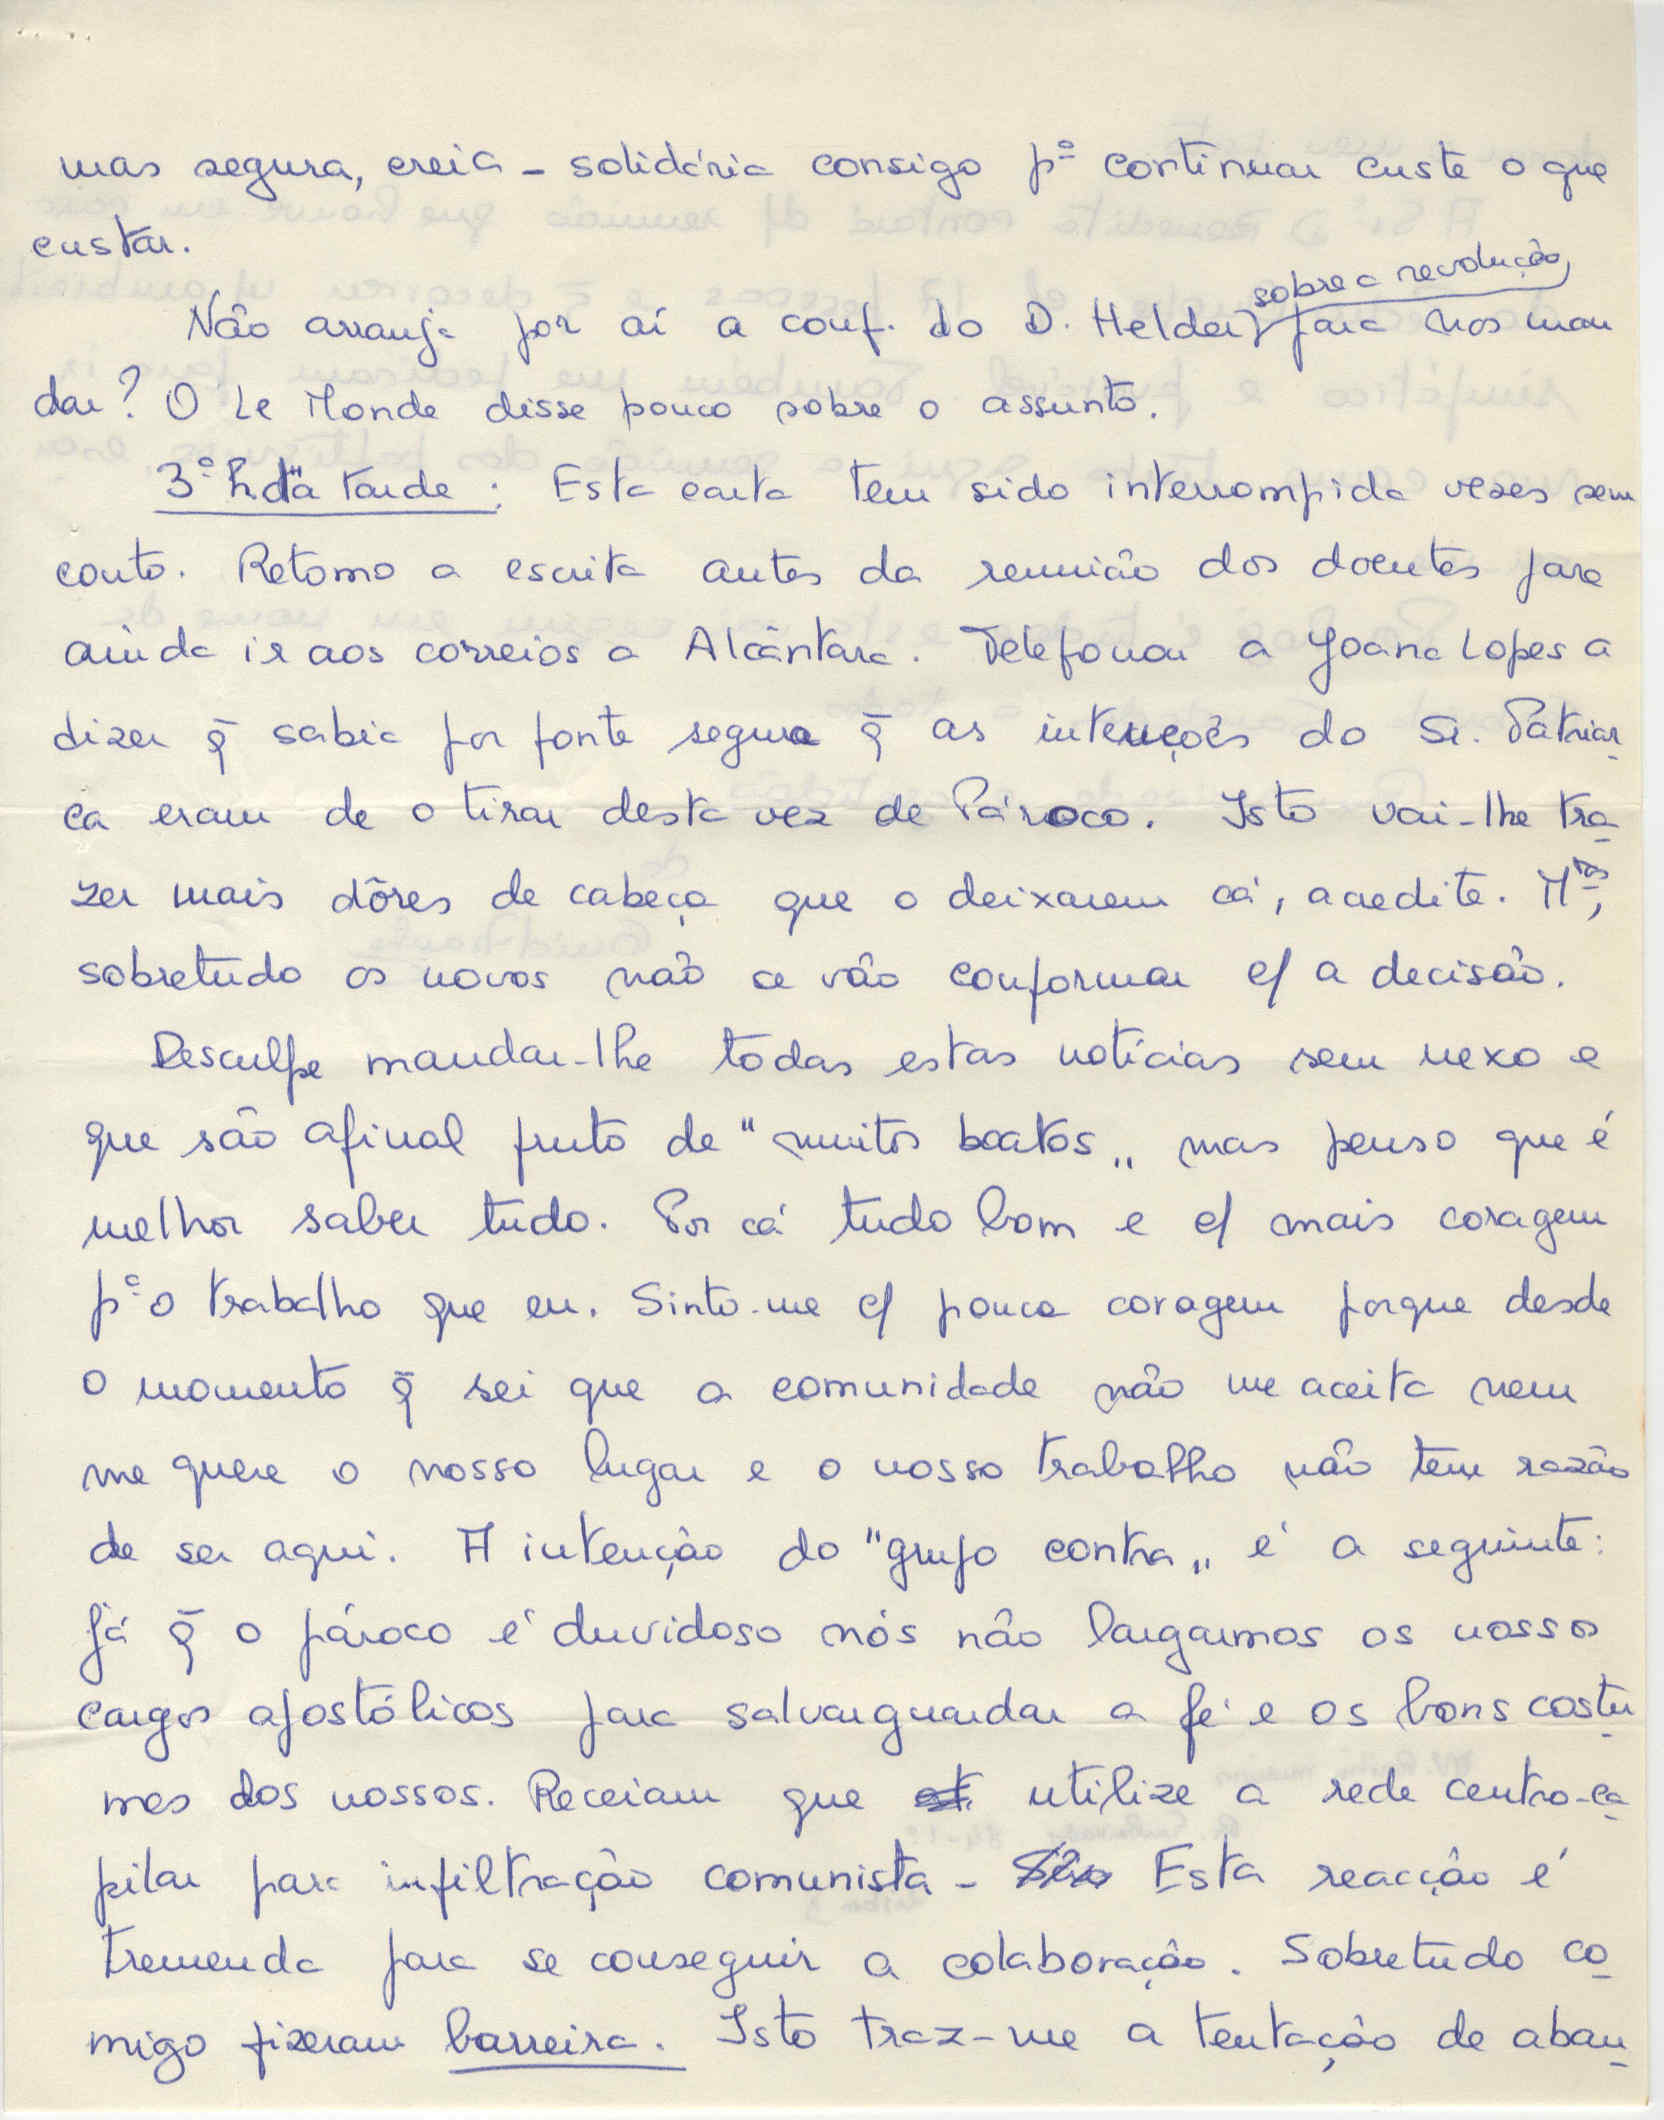 mas segura, creia - solidária consigo pª continuar custe o que
custar.
Não arranja por aí a conf. do D. Helder sobre a revolução para nos man
dar? O Le Monde disse pouco sobre o assunto.
3ª h. da tarde: Esta carta tem sido interrompida vezes sem
conto. Retomo a escrita antes da reunião dos doentes para
ainda ir aos correios a Alcântara. Telefonou a Joana Lopes a
dizer q̄ sabia por fonte segura q̄ as intenções do Sr. Patriar
ca eram de o tirar desta vez de Pároco. Isto vai-lhe tra
zer mais dôres de cabeça que o deixarem cá, acredite. Mᵗᵒˢ,
sobretudo os novos não se vão conformar c/ a decisão.
Desculpe mandar-lhe todas estas notícias sem nexo e
que são afinal fruto de "muitos boatos" mas penso que é
melhor saber tudo. Por cá tudo bom e c/ mais coragem
pª o trabalho que eu. Sinto-me c/ pouca coragem porque desde
o momento q̄ sei que a comunidade não me aceita nem
me quere o nosso lugar e o nosso trabalho não tem razão
de ser aqui. A intenção do "grupo contra" é a seguinte:
Já q̄ o pároco é duvidoso nós não largarmos os nossos
cargos apostólicos para salvarguardar a fé e os bons costu
mes dos nossos. Receiam que utilize a rede centro-ca
pilar para infiltração comunista - Esta reacção é
tremenda para se conseguir a colaboração. Sobretudo co
migo fizeram barreira. Isto traz-me a tentação de aban